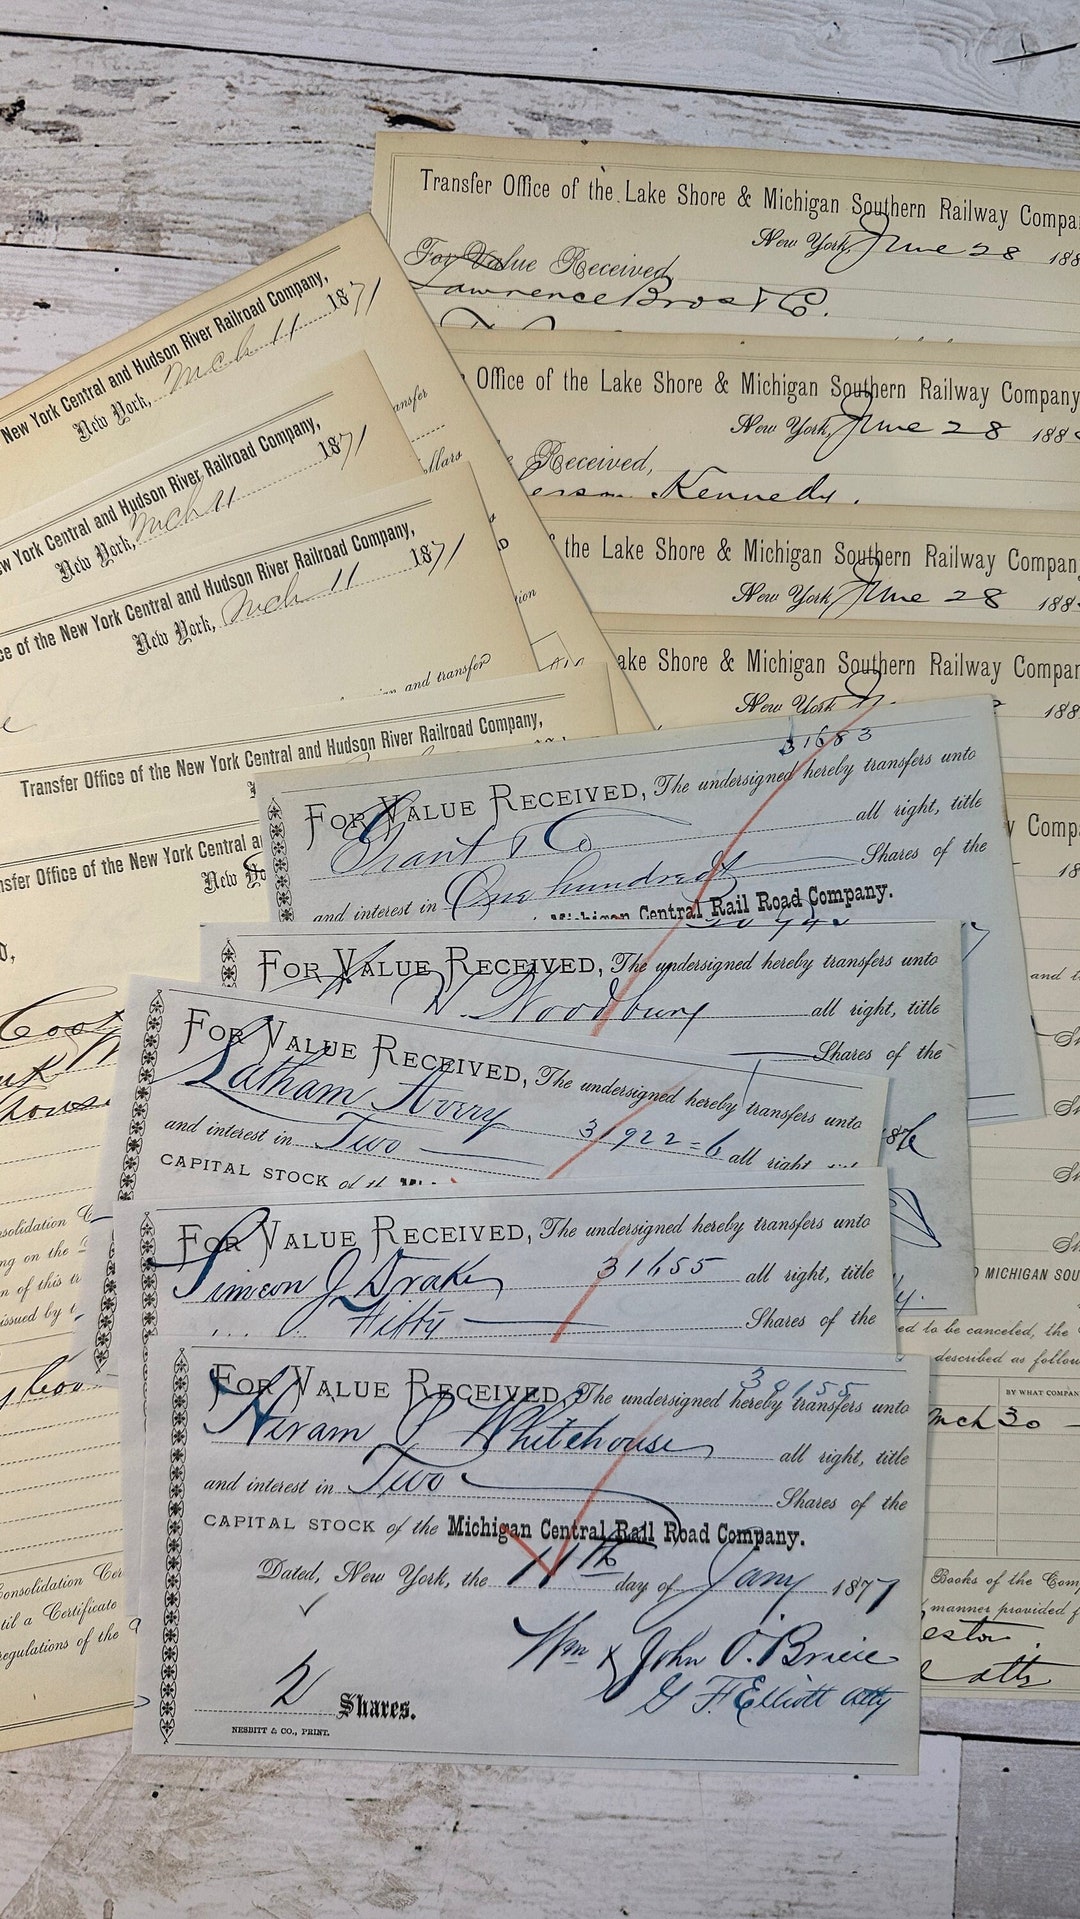 Transfer Office of the Lake Shore & Michigan Southern Railway Compa
New York, June 28 188
For Value Received,
Lawrence Bros & Co.
Office of the Lake Shore & Michigan Southern Railway Company
New York, June 28 188
Received,
erson Kennedy.
the Lake Shore & Michigan Southern Railway Compan
New York June 28 188
ake Shore & Michigan Southern Railway Compan
New York 188
y Comp
18
New York Central and Hudson River Railroad Company,
New York, Mch 11 1871
ansfer
ollars
w York Central and Hudson River Railroad Company,
New York, Mch 11 1871
tion
ce of the New York Central and Hudson River Railroad Company,
New York, Mch 11 1871
and transfer
Transfer Office of the New York Central and Hudson River Railroad Company,
nsfer Office of the New York Central a
New Yo
31683
For Value Received, The undersigned hereby transfers unto
Grant & Co all right, title
and interest in One hundred Shares of the
Michigan Central Rail Road Company.
For Value Received, The undersigned hereby transfers unto
W. Woodbury all right, title
Shares of the
For Value Received, The undersigned hereby transfers unto
Latham Avery
31922=6 all right
and interest in Two
CAPITAL STOCK of th
1876
For Value Received, The undersigned hereby transfers unto
Simeon J Drake 31655 all right, title
Fifty Shares of the
30155
For Value Received, The undersigned hereby transfers unto
Hiram P Whitehouse all right, title
and interest in Two Shares of the
CAPITAL STOCK of the Michigan Central Rail Road Company.
Dated, New York, the 11th day of Jany 1877
Wm & John O'Brien
G F Elliott atty
2 Shares.
NESBITT & CO., PRINT.
nsolidation C
ng on the
n of this tr
issued by t
Consolidation Cer
til a Certificate
regulations of the
and t
MICHIGAN SOU
ed to be canceled, the
described as follow
BY WHAT COMPAN
Mch 30
Books of the Com
manner provided f
atty